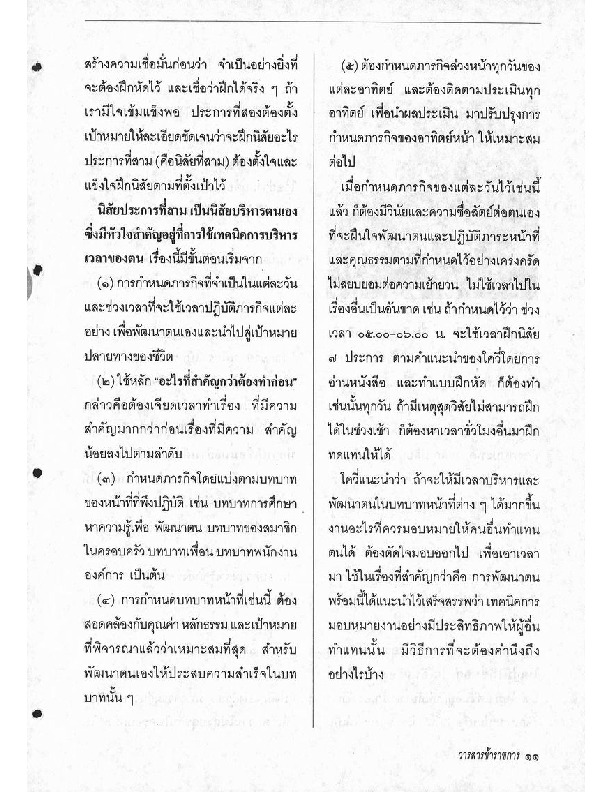 สร้างความเชื่อมั่นก่อนว่า จำเป็นอย่างยิ่งที่
จะต้องฝึกหัดไว้ และเชื่อว่าฝึกได้จริง ๆ ถ้า
เรามีใจเข้มแข็งพอ ประการที่สองต้องตั้ง
เป้าหมายให้ละเอียดชัดเจนว่าจะฝึกนิสัยอะไร
ประการที่สาม (คือนิสัยที่สาม) ต้องตั้งใจและ
แข็งใจฝึกนิสัยตามที่ตั้งเป้าไว้
นิสัยประการที่สาม เป็นนิสัยบริหารตนเอง
ซึ่งมีหัวใจสำคัญอยู่ที่การใช้เทคนิคการบริหาร
เวลาของตน เรื่องนี้มีขั้นตอนเริ่มจาก
(๑) การกำหนดภารกิจที่จำเป็นในแต่ละวัน
และช่วงเวลาที่จะใช้เวลาปฏิบัติภารกิจแต่ละ
อย่าง เพื่อพัฒนาตนเองและนำไปสู่เป้าหมาย
ปลายทางของชีวิต
(๒) ใช้หลัก "อะไรที่สำคัญกว่าต้องทำก่อน"
กล่าวคือต้องเจียดเวลาทำเรื่อง ที่มีความ
สำคัญมากกว่าก่อนเรื่องที่มีความ สำคัญ
น้อยลงไปตามลำดับ
(๓) กำหนดภารกิจโดยแบ่งตามบทบาท
ของหน้าที่ที่พึงปฏิบัติ เช่น บทบาทการศึกษา
หาความรู้เพื่อ พัฒนาตน บทบาทของสมาชิก
ในครอบครัว บทบาทเพื่อน บทบาทพนักงาน
องค์การ เป็นต้น
(๔) การกำหนดบทบาทหน้าที่เช่นนี้ ต้อง
สอดคล้องกับคุณค่า หลักธรรม และเป้าหมาย
ที่พิจารณาแล้วว่าเหมาะสมที่สุด สำหรับ
พัฒนาตนเองให้ประสบความสำเร็จในบท
บาทนั้น ๆ
(๕) ต้องกำหนดภารกิจล่วงหน้าทุกวันของ
แต่ละอาทิตย์ และต้องติดตามประเมินทุก
อาทิตย์ เพื่อนำผลประเมิน มาปรับปรุงการ
กำหนดภารกิจของอาทิตย์หน้า ให้เหมาะสม
ต่อไป
เมื่อกำหนดภารกิจของแต่ละวันไว้เช่นนี้
แล้ว ก็ต้องมีวินัยและความซื่อสัตย์ต่อตนเอง
ที่จะฝืนใจพัฒนาตนและปฏิบัติภาระหน้าที่
และคุณธรรมตามที่กำหนดไว้อย่างเคร่งครัด
ไม่สยบยอมต่อความเย้ายวน ไม่ใช้เวลาไปใน
เรื่องอื่นเป็นอันขาด เช่น ถ้ากำหนดไว้ว่า ช่วง
เวลา ๐๕.๐๐-๐๖.๐๐ น. จะใช้เวลาฝึกนิสัย
๗ ประการ ตามคำแนะนำของโควี่โดยการ
อ่านหนังสือ และทำแบบฝึกหัด ก็ต้องทำ
เช่นนั้นทุกวัน ถ้ามีเหตุสุดวิสัยไม่สามารถฝึก
ได้ในช่วงเช้า ก็ต้องหาเวลาชั่วโมงอื่นมาฝึก
ทดแทนให้ได้
โควี่แนะนำว่า ถ้าจะให้มีเวลาบริหารและ
พัฒนาตนในบทบาทหน้าที่ต่าง ๆ ได้มากขึ้น
งานอะไรที่ควรมอบหมายให้คนอื่นทำแทน
ตนได้ ต้องตัดใจมอบออกไป เพื่อเอาเวลา
มา ใช้ในเรื่องที่สำคัญกว่าคือ การพัฒนาตน
พร้อมนี้ได้แนะนำไว้เสร็จสรรพว่า เทคนิคการ
มอบหมายงานอย่างมีประสิทธิภาพให้ผู้อื่น
ทำแทนนั้น มีวิธีการที่จะต้องคำนึงถึง
อย่างไรบ้าง
วารสารข้าราชการ ๑๑